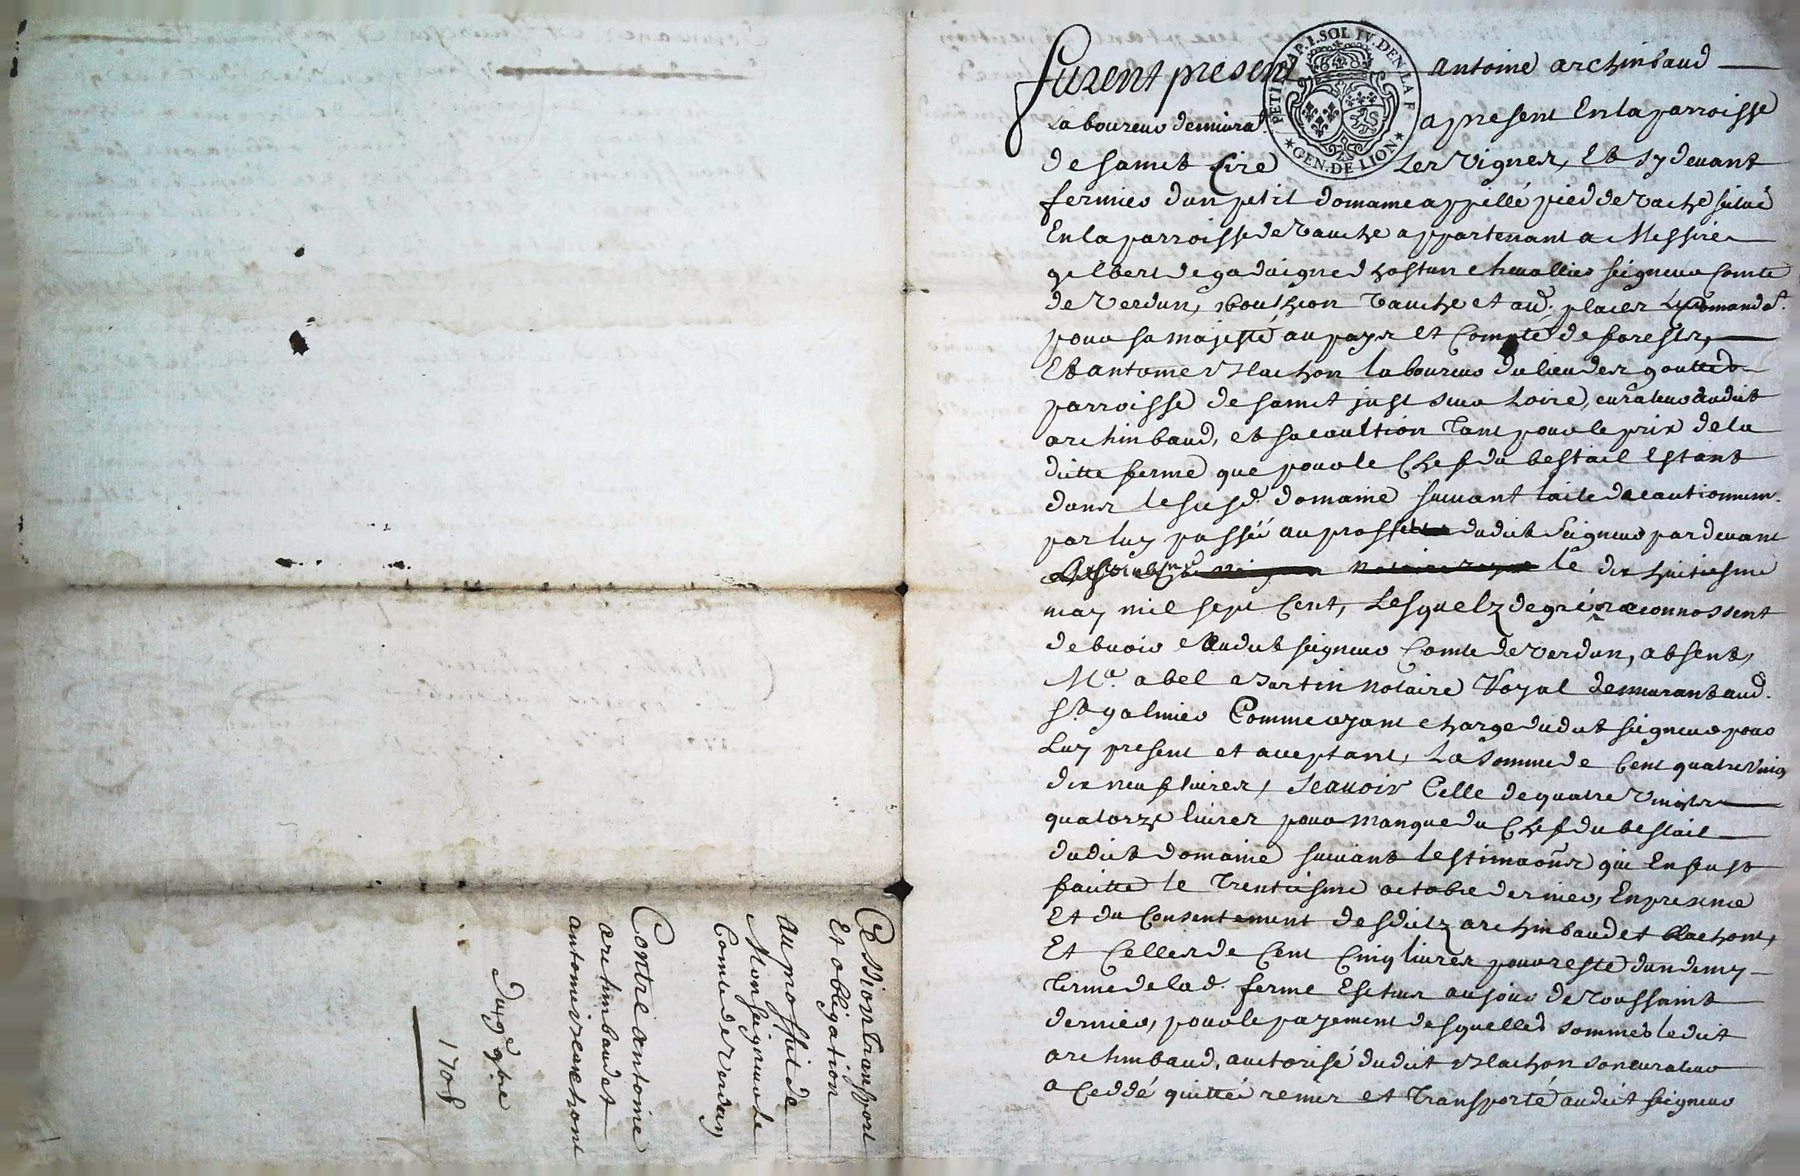 Cession transport
Et obligation
au proffit de
Monseigneur le
Comte de Verdun
Contre antoine
archinbaud et
antoine vrlachont
Du 9e 9bre
1708
furent present antoine archinbaud
PETI PAP. 1. SOL IV. DEN. LA F
GEN. DE LION
laboureur demeurat a present En la parroisse
de sainct Cire les vignes, Et sy devant
fermier dun petit domaine appellé pied de vache situé
En la parroisse de Vauche appartenant a Messire
gilbert de gadaigne dhostun chevallier seigneur Comte
de Verdun, bouthion Vauche et aud. places Comandt.
pour sa majesté au pays et Compté de forestz,
Et antoine vrlachon laboureur du lieu des gouttes
parroisse de sainct just sur Loire, curateur dudit
archinbaud, et sa caultion tant pour le prix de la
ditte ferme que pour le Chef du bestail Estant
dans le susd. domaine suivant lacte de cautionnem.
par luy passée au proffit dudit seigneur pardevant
le dix huictiesme
may mil sept Cent, Lesquelz de gré reconnossent
debvoir audit seigneur Comte de Verdun, absent,
Me. abel Martin notaire Royal
St galmier Comme ayant charge dudit seigneur pour
Luy present et aceptant, La somme de Cent quatre vingt
dix neuf livres, Scavoir Celle de quatre vingtz
quatorze livres pour manque du Chef du bestail
dudit domaine suivant lestimaons qui En fust
faitte le trentiesme octobre dernier, En presence
Et du Consentement desditz archinbaud et vrlachont,
Et Celles de Cent Cinq livres pour reste dun demy
terme de lad. ferme Escheu au jour de toussaint
dernier, pour le payement desquelles sommes ledit
archinbaud, auctorisé dudit vrlachon son curateur
a Ceddé quitté remis et transporté audit seigneur